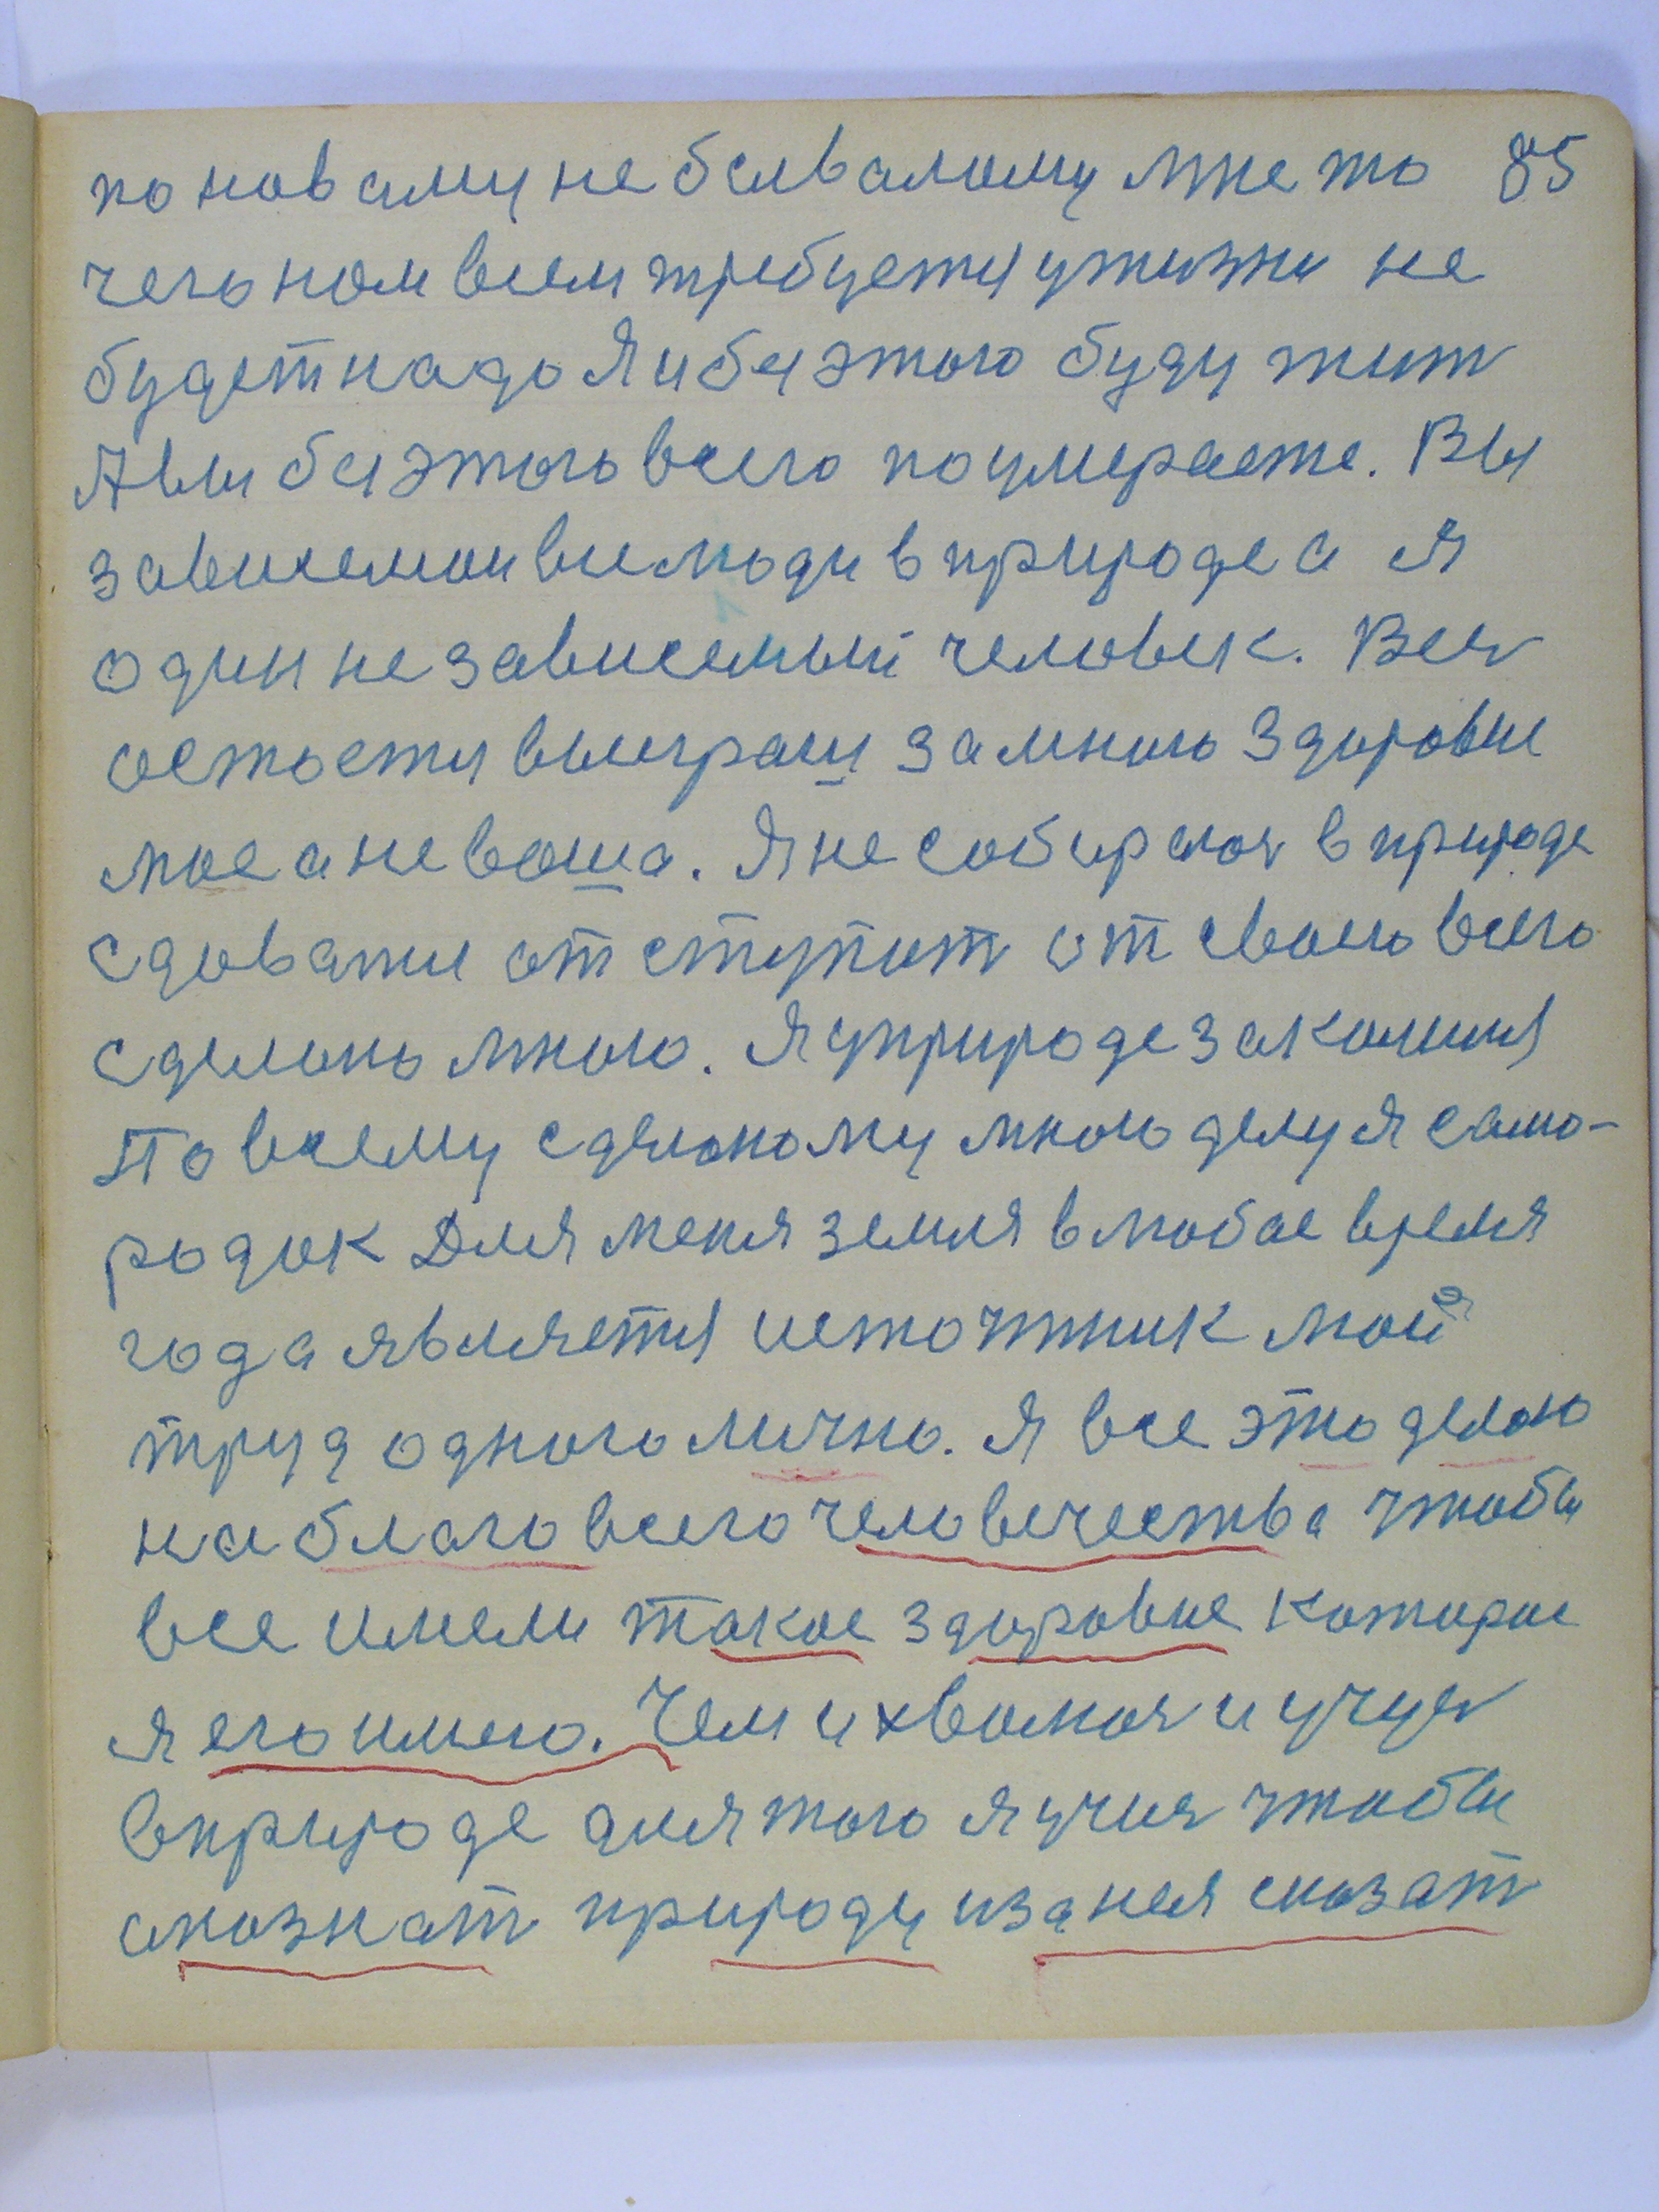 по новаму не бывалому мне то 85
чего нам всем требуется у жизни не
будет надо Я и без этого буду жит
А вы без этого всего поумераете. Вы
зависемои вы люди в природе а я
один не зависемый человек. Вся
остается выиграш за мною Здоровие
мое а не ваша. Я не собираюс в природе
здаватся отступит от своего всего
сделано мною. Я у природе закалился
По всему сделоному мною делу я само-
родок Для меня земля в любое время
года является источтник мой
труд одного лично. Я все это делаю
на благо всего человечества чтобы
все имели такое здоровие каторое
я его имею. Чем и хвалюс и учус
в природе для того я учус чтобы
опознат природу из нея сказат